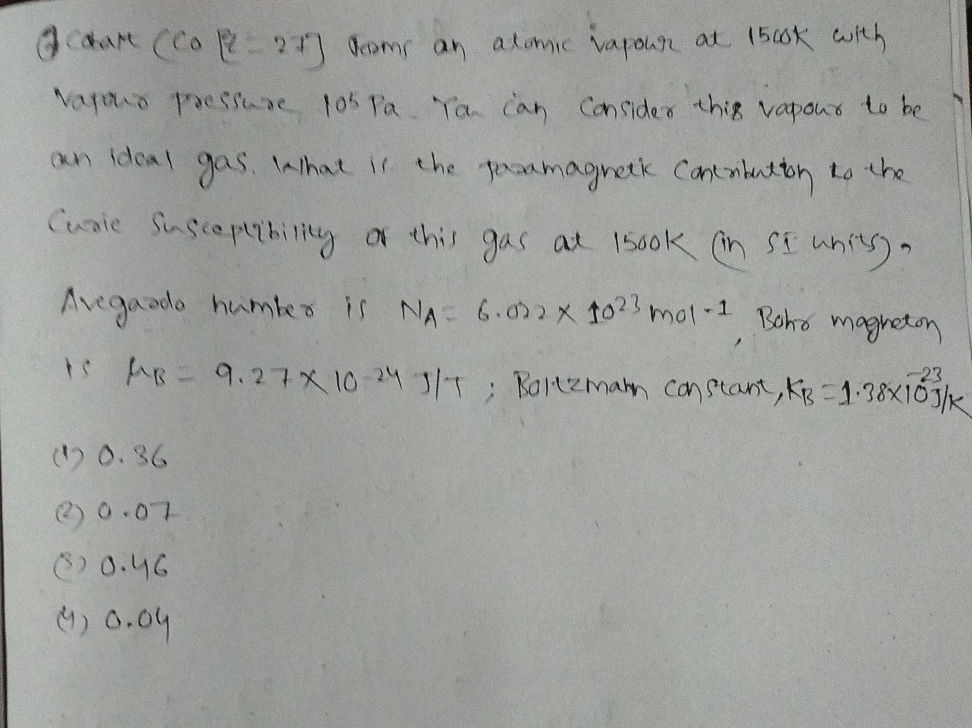 (Co [Z = 27] forms an atomic vapour at 1500K with
Vapour pressure 10⁵ Pa. You can Consider this vapour to be
an ideal gas. What is the paramagnetic Contribution to the
Curie Susceptibility of this gas at 1500K (in SI units).
Avegaado number is NA = 6.022 × 10²³ mol-1, Bohr magneton
is μB = 9.27 × 10-24 J/T ; Boltzmann constant, KB = 1.38×10⁻²³ J/K
(1) 0.36
(2) 0.07
(3) 0.46
(4) 0.04